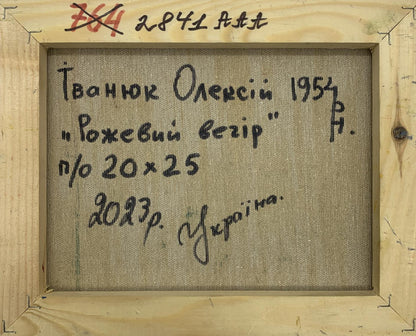 764 2841 AAA
Іванюк Олексій 1954 р.н.
"Рожевий вегір"
п/о 20x25
2023р. Україна.